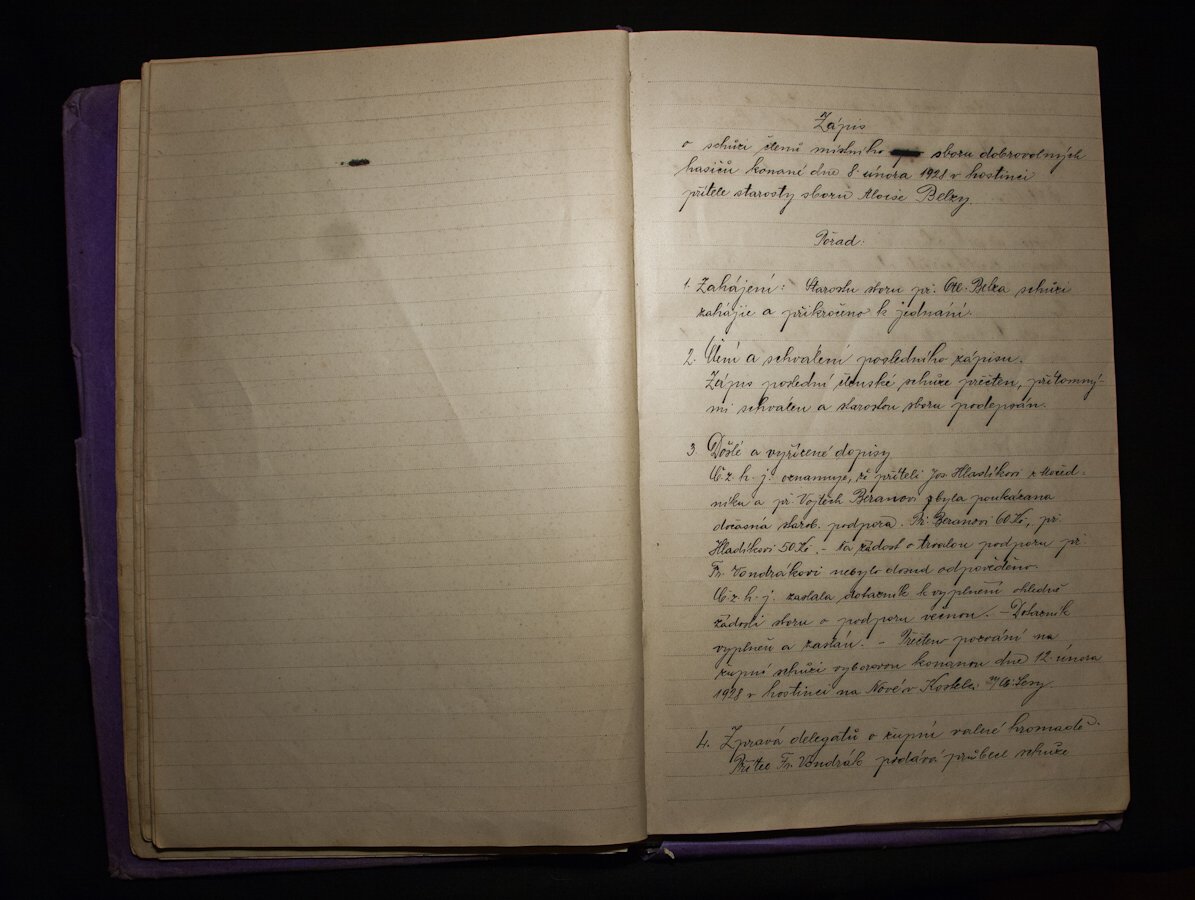 Zápis
o schůzi členů místního sboru dobrovolných
hasičů konané dne 8. února 1928 v hostinci
přítele starosty sboru Aloise Belzy.
Pořad:
1. Zahájení: Starosta sboru př. Belza schůzi
zahájil a přikročeno k jednání.
2. Čtení a schválení posledního zápisu.
Zápis poslední členské schůze přečten, přítomný-
mi schválen a starostou sboru podepsán.
3. Došlé a vyřízené dopisy
Ú. z. h. j. oznamuje, že příteli Jos. Hladíkovi z
a př. Vojtěch Beranovi byla poukázana
dočasná starob. podpora. Př. Beranovi 60 Kč, př.
Hladíkovi 50 Kč. – Na žádost o trvalou podporu př.
Fr. Vondrákovi nebylo dosud odpověděno.
Ú. z. h. j. zaslala dotazník k vyplnění ohledně
žádosti sboru o podporu věcnou. – Dotazník
vyplněn a zaslán. – Přečten pozvání na
župní schůzi výborovou konanou dne 12. února
1928 v hostinci na Nové v Kostelci
4. Zpravá delegatů o župní valné hromadě.
Přítel Fr. Vondrák podává průběh schůze